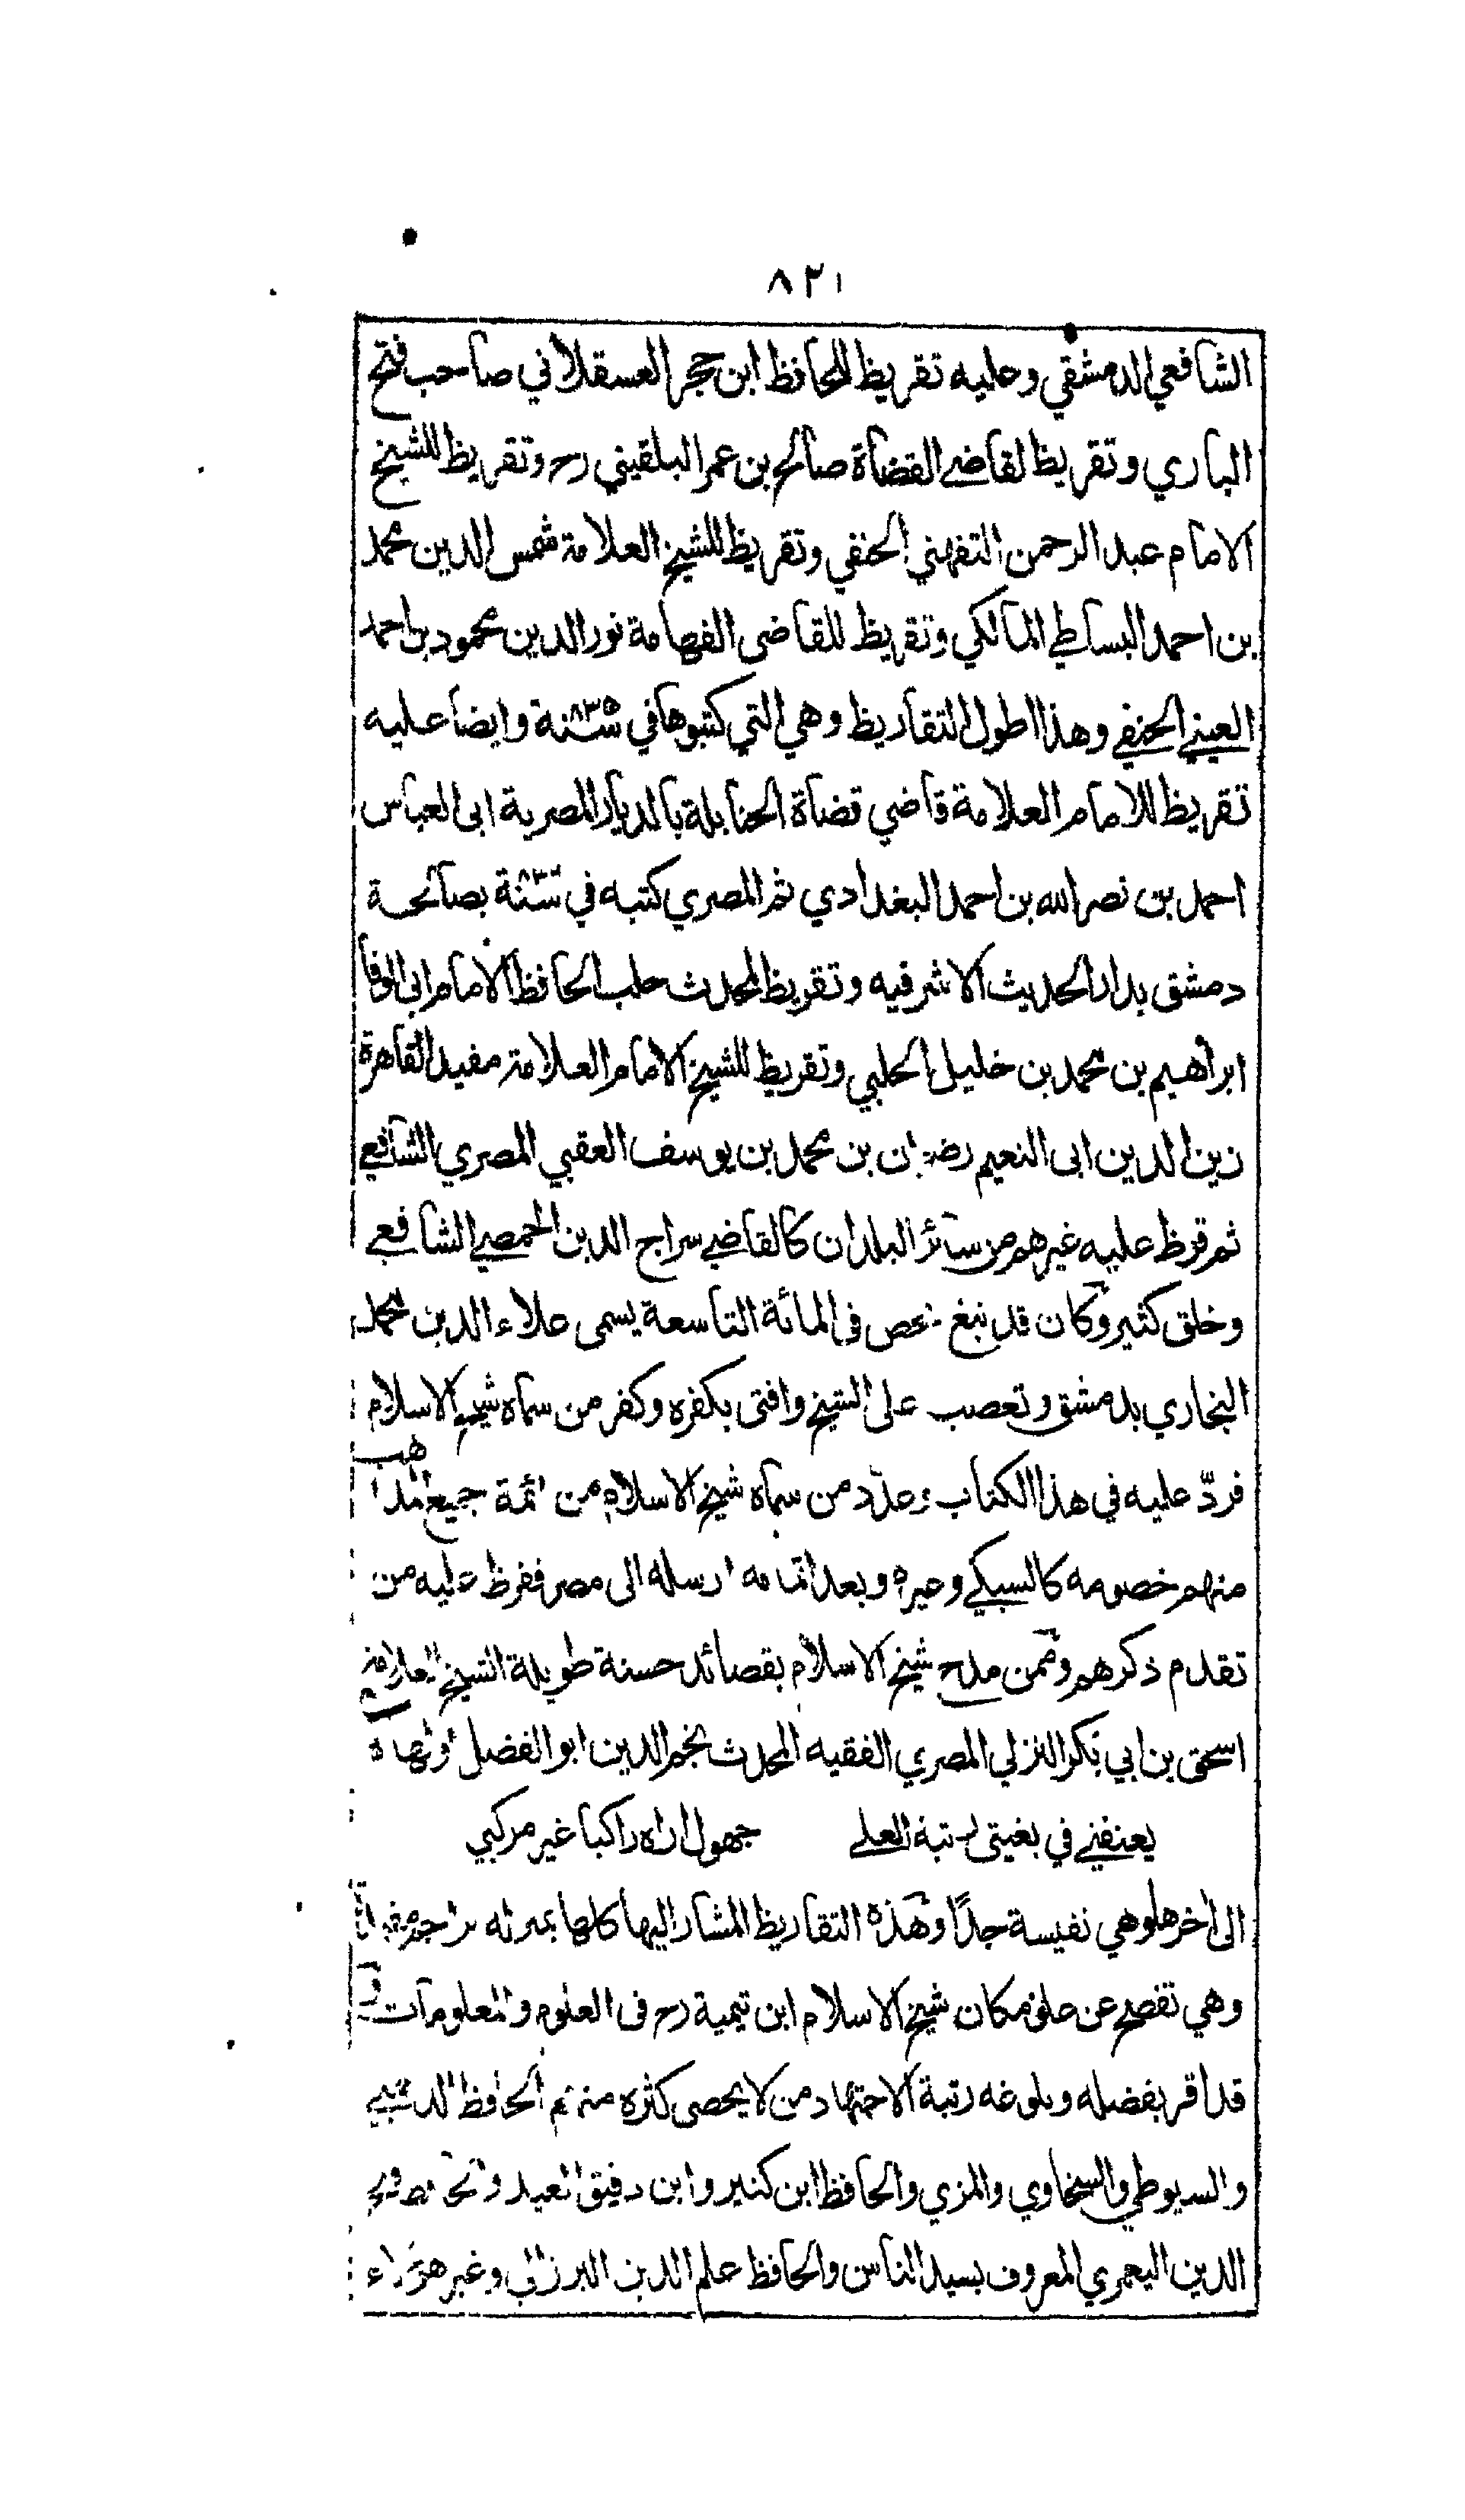 ٨٢١
الشافعي الدمشقي وعليه تقريظ للحافظ ابن حجر العسقلاني صاحب فتح
الباري وتقريظ لقاضي القضاة صالح بن عمر البلقيني رح وتقريظ للشيخ
الامام عبد الرحمن التفهني الحنفي وتقريظ للشيخ العلامة شمس الدين محمد
بن احمد البساطي المالكي وتقريظ للقاضي الفهامة نور الدين محمود بن احمد
العيني الحنفي وهذا اطول التقاريظ وهي التي كتبوها في سنة ٨٣٥ وايضا عليه
تقريظ للامام العلامة قاضي قضاة الحنابلة بالديار المصرية ابي العباس
احمد بن نصر الله بن احمد البغدادي ثم المصري كتبه في سنة بصالحية
دمشق بدار الحديث الاشرفيه وتقريظ لمحدث حلب الحافظ الامام ابي الوفا
ابراهيم بن محمد بن خليل الحلبي وتقريظ للشيخ الامام العلامة مفيد القاهرة
زين الدين ابي النعيم رضوان بن محمد بن يوسف العقبي المصري الشافعي
ثم قرظ عليه غيرهم من سائر البلدان كالقاضي سراج الدين الحمصي الشافعي
وخلق كثير وكان قد نبغ شخص في المائة التاسعة يسمى علاء الدين محمد
البخاري بدمشق وتعصب على الشيخ وافتى بكفره وكفر من سماه شيخ الاسلام
فردّ عليه في هذا الكتاب وعدّد من سماه شيخ الاسلام من ائمة جميع المذاهب
منهم خصومه كالسبكي وغيره وبعد اتمامه ارسله الى مصر فقرظ عليه من
تقدم ذكرهم وممن مدح شيخ الاسلام بقصائد حسنة طويلة الشيخ العلامة
اسحق بن ابي بكر التركي المصري الفقيه المحدث نجم الدين ابو الفضل اولها ه
يعنفني في بغيتي رتبة العلي جهول اراه راكبا غير مركبي
الى اخرها وهي نفيسة جدًا وهذه التقاريظ المشار اليها كلها بمنزلة تراجم
وهي تفصح عن علو مكان شيخ الاسلام ابن تيمية رح في العلوم والمعلومات و
قد اقر بفضله وبلوغه رتبة الاجتهاد من لا يحصى كثره منهم الحافظ الذهبي
والسيوطي والسخاوي والمزي والحافظ ابن كثير وابن دقيق العيد والحافظ فتح
الدين اليعمري المعروف بسيد الناس والحافظ علم الدين البرزالي وغير هؤلاء